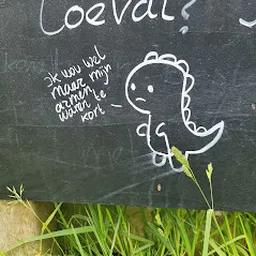 Toeval?
Ik wou wel
maar mijn
armen
waren te
kort